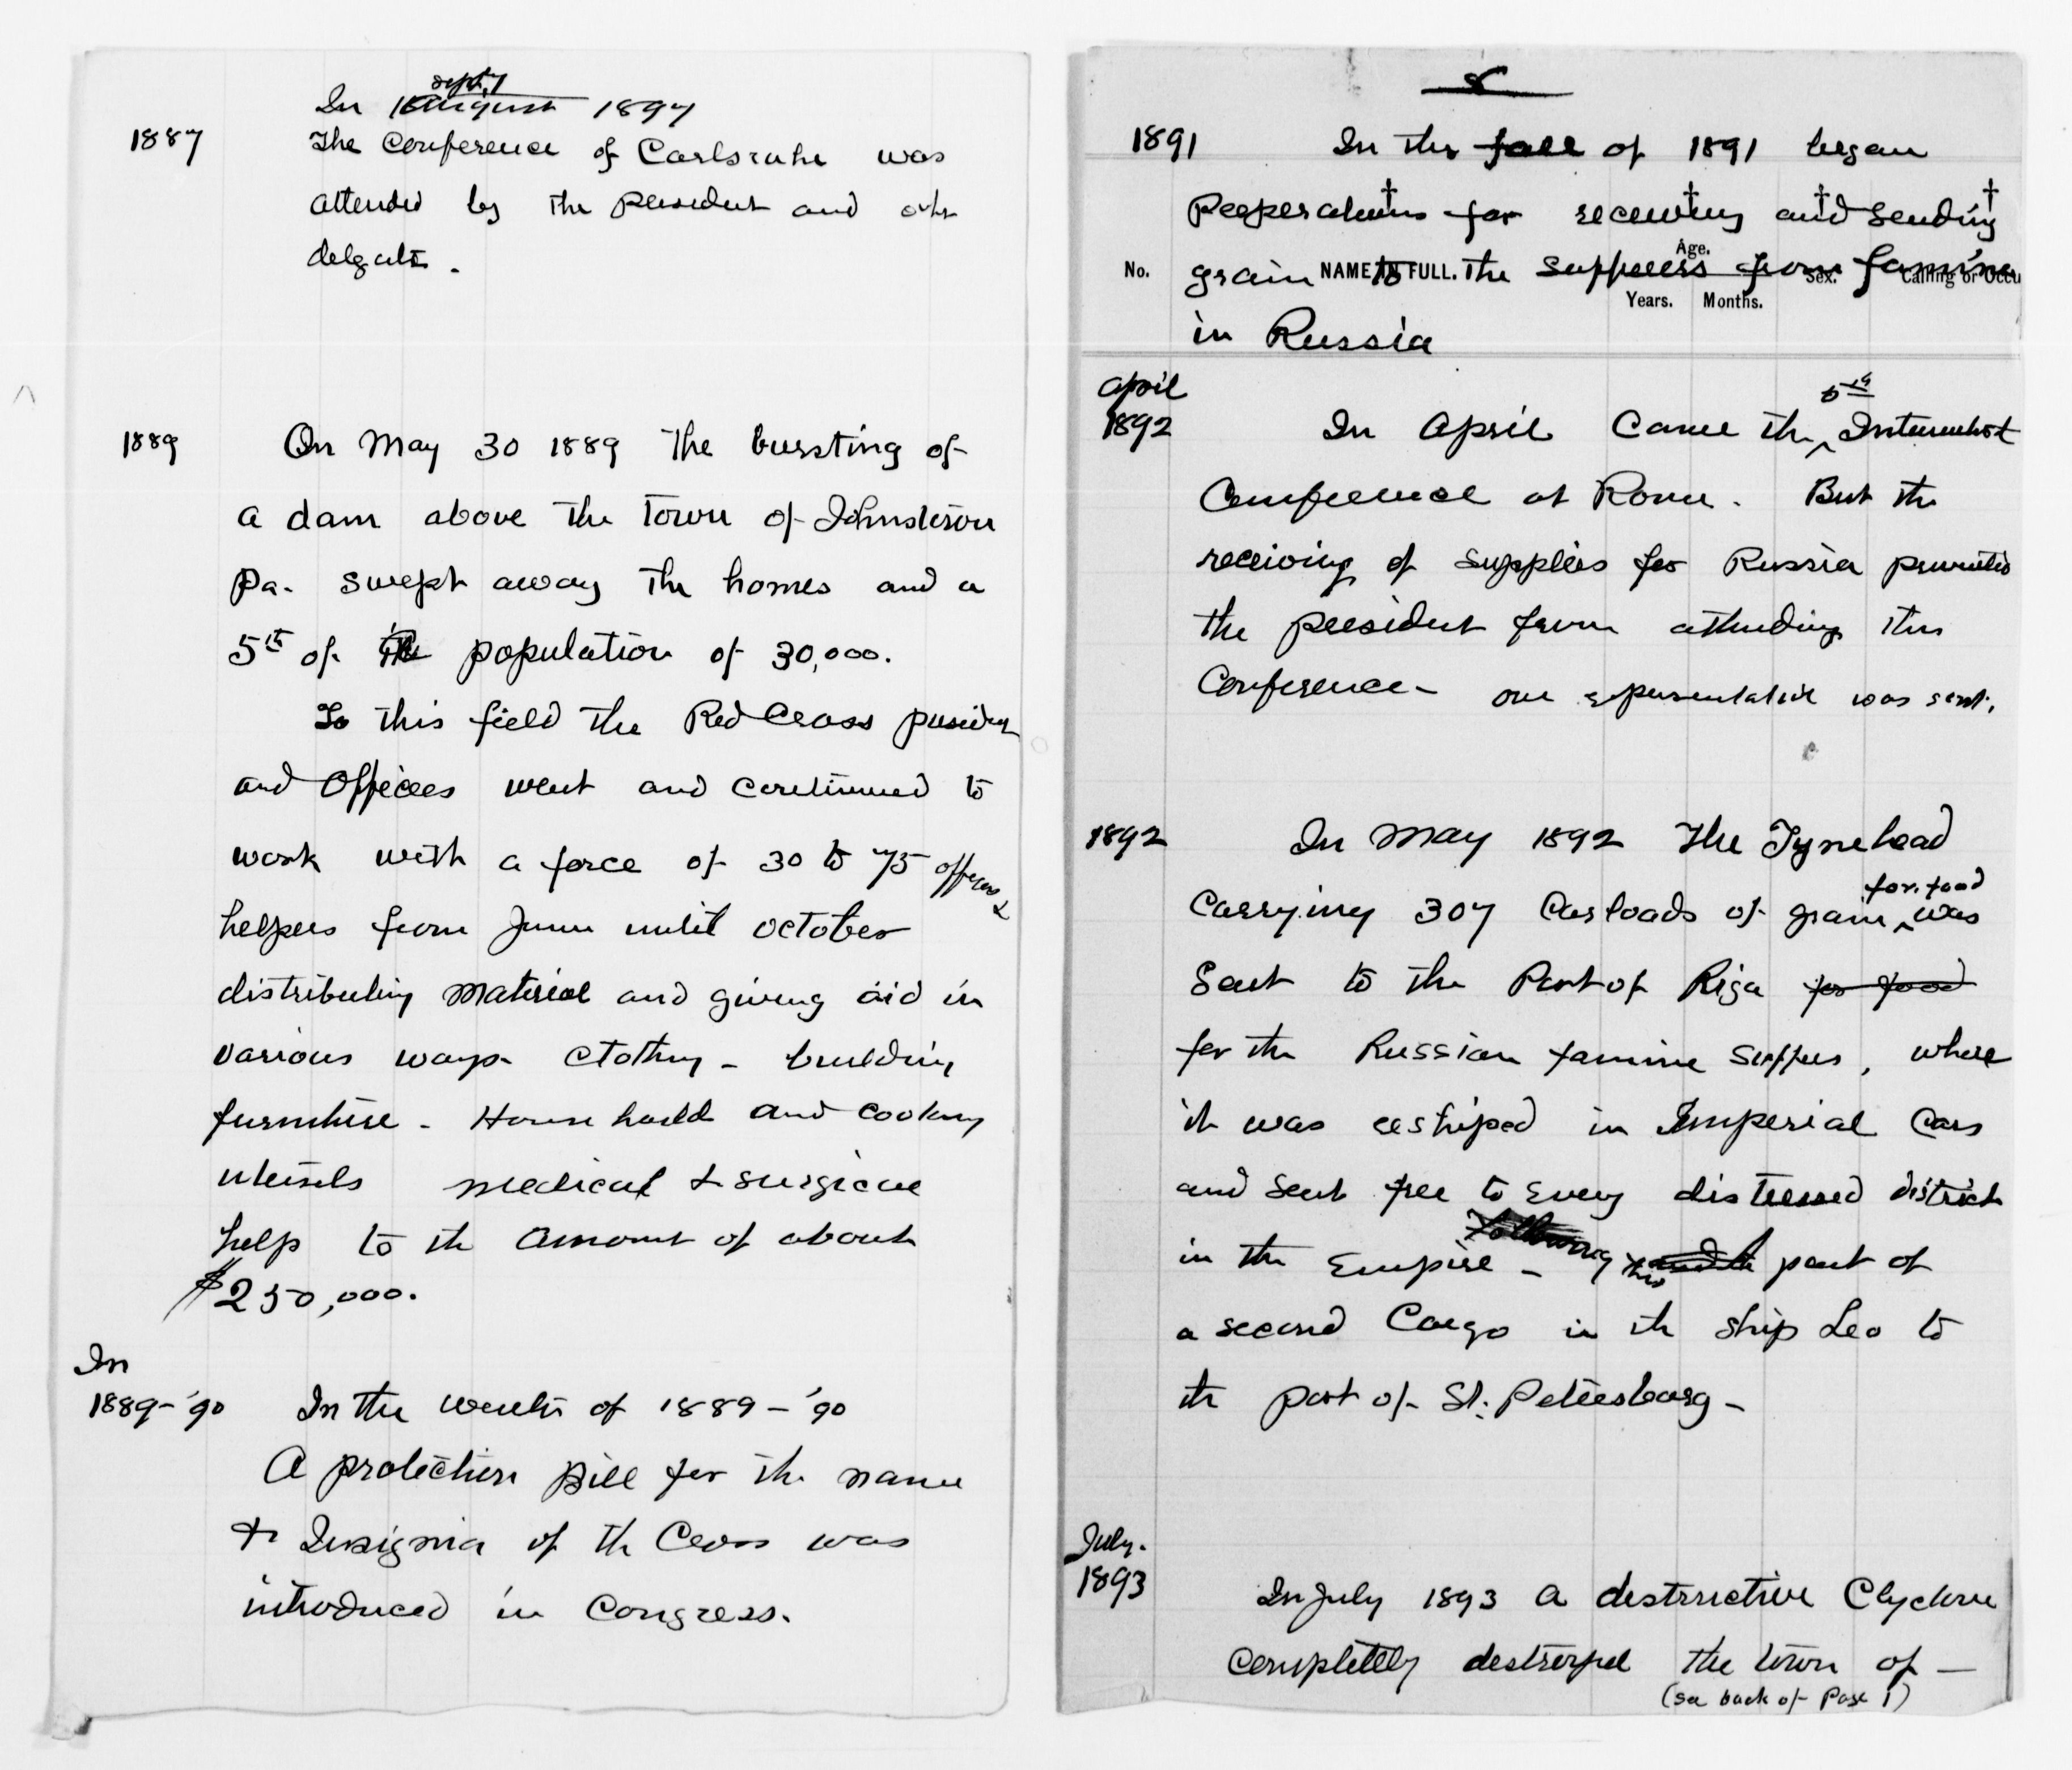 Septr
In August 1897
1887 The Conference of Carlsruhe was
attended by the President and othr
delgats.
1889 On May 30 1889 the bursting of
a dam above the Town of Johnstown
Pa. swept away the homes and a
5th of the population of 30,000.
To this field the Red Cross president
and Officers went and continued to
work with a force of 30 to 75 officers &
helpers from June until October
distributing material and giving aid in
various ways - Clothing - building
furniture - House hold and cooking
utensils medical & surgical
help to th amount of about
$250,000.
In
1889-'90 In the winter of 1889-'90
A protection Bill for the name
& Insignia of th Cross was
introduced in Congress.
8
1891 In the fall of 1891 began
preperations for receiving and sending
No. NAME IN FULL. Age. Years. Months. Sex. Calling or Occu
grain to the sufferers from famine
in Russia
April
1892 In April came the 5th Internatnat
Conference at Rome. But the
receiving of supplies for Russia prevented
the president from attending this
Conference - one representative was sent.
1892 In May 1892 The Tynehead
for food
carrying 307 Carloads of grain was
sent to the Port of Riga for food
for the Russian famine suffers, where
it was reshiped in Imperial Cars
and sent free to every distressed district
in the Empire - Following this part of
a second Cargo in th ship Leo to
th port of St. Petersburg -
July.
1893 In July 1893 a destructive Clyclone
completely destroyed the town of -
(see back of Page 1)